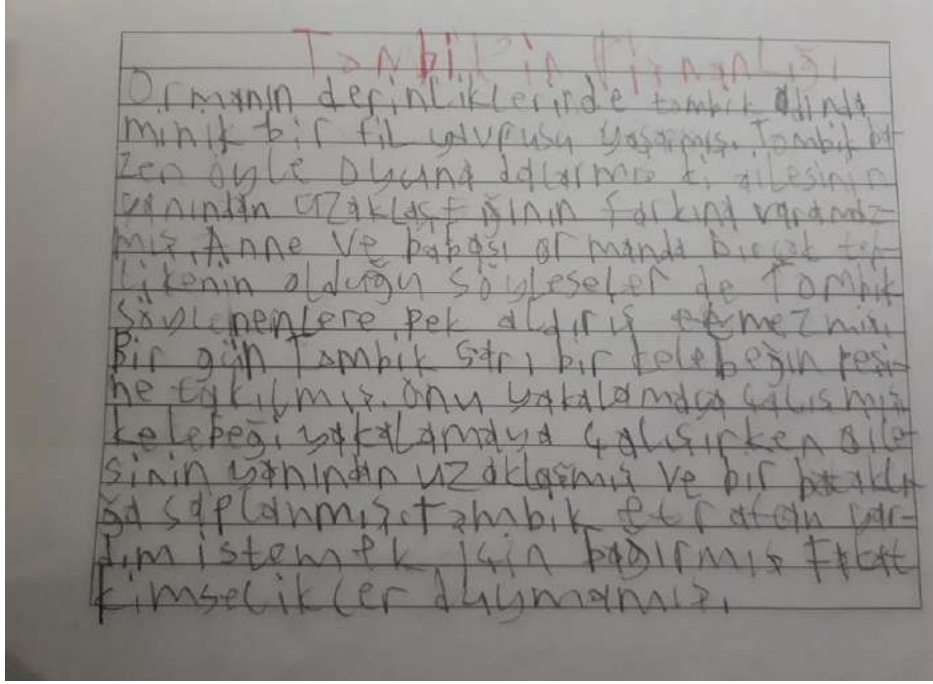 Tombik'in Pişmanlığı
Ormanın derinliklerinde tombik adında
minik bir fil yavrusu yaşarmış. Tombik ba-
zen öyle oyuna dalarmış ki ailesinin
yanından uzaklaştığının farkına varamaz-
mış. Anne ve babası ormanda birçok teh-
likenin olduğu söyleseler de Tombik
söylenenlere pek aldırış etmezmiş.
Bir gün Tombik sarı bir kelebeğin peşi-
ne takılmış. Onu yakalamaya çalışmış
kelebeği yakalamaya çalışırken aile
sinin yanından uzaklaşmış ve bir bataklı
ğa saplanmış. Tombik etraftan yar-
dım istemek için bağırmış Fakat
kimselikler duymamış.